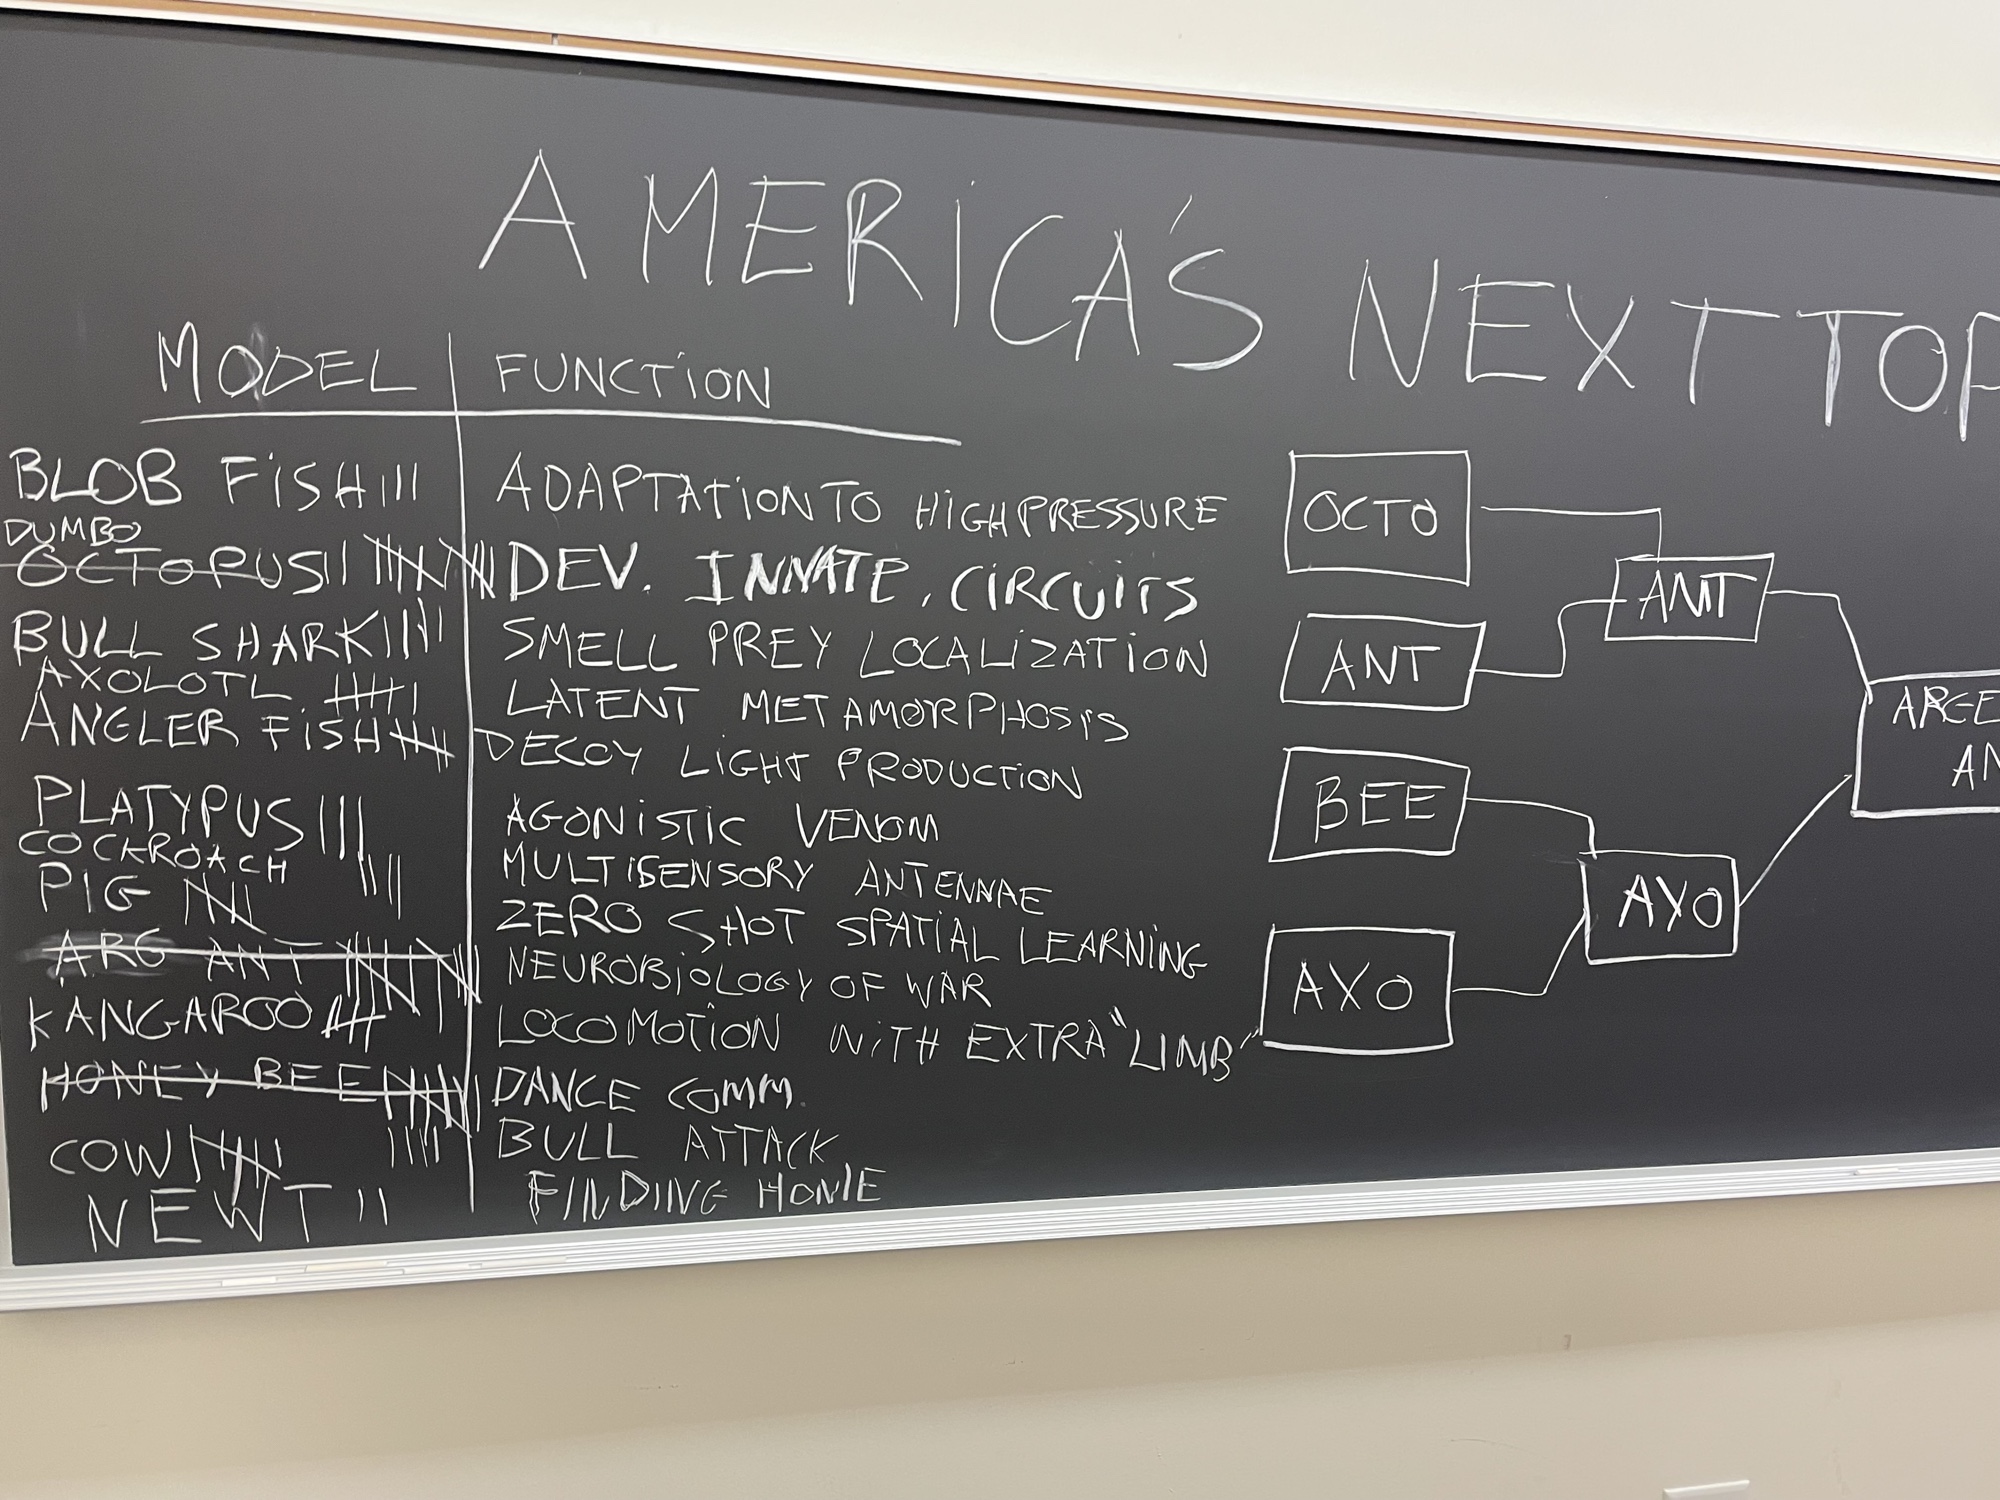 AMERICA'S NEXT TOP
MODEL FUNCTION
BLOB FISH ADAPTATION TO HIGH PRESSURE
DUMBO
OCTOPUS DEV. INNATE. CIRCUITS
BULL SHARK SMELL PREY LOCALIZATION
AXOLOTL LATENT METAMORPHOSIS
ANGLER FISH DECOY LIGHT PRODUCTION
PLATYPUS AGONISTIC VENOM
COCKROACH MULTISENSORY ANTENNAE
PIG ZERO SHOT SPATIAL LEARNING
ARG ANT NEUROBIOLOGY OF WAR
KANGAROO LOCOMOTION WITH EXTRA "LIMB"
HONEY BEE DANCE COMM.
COW BULL ATTACK
NEWT FINDING HOME
OCTO
ANT
BEE
AXO
ANT
AXO
ARGE
AN